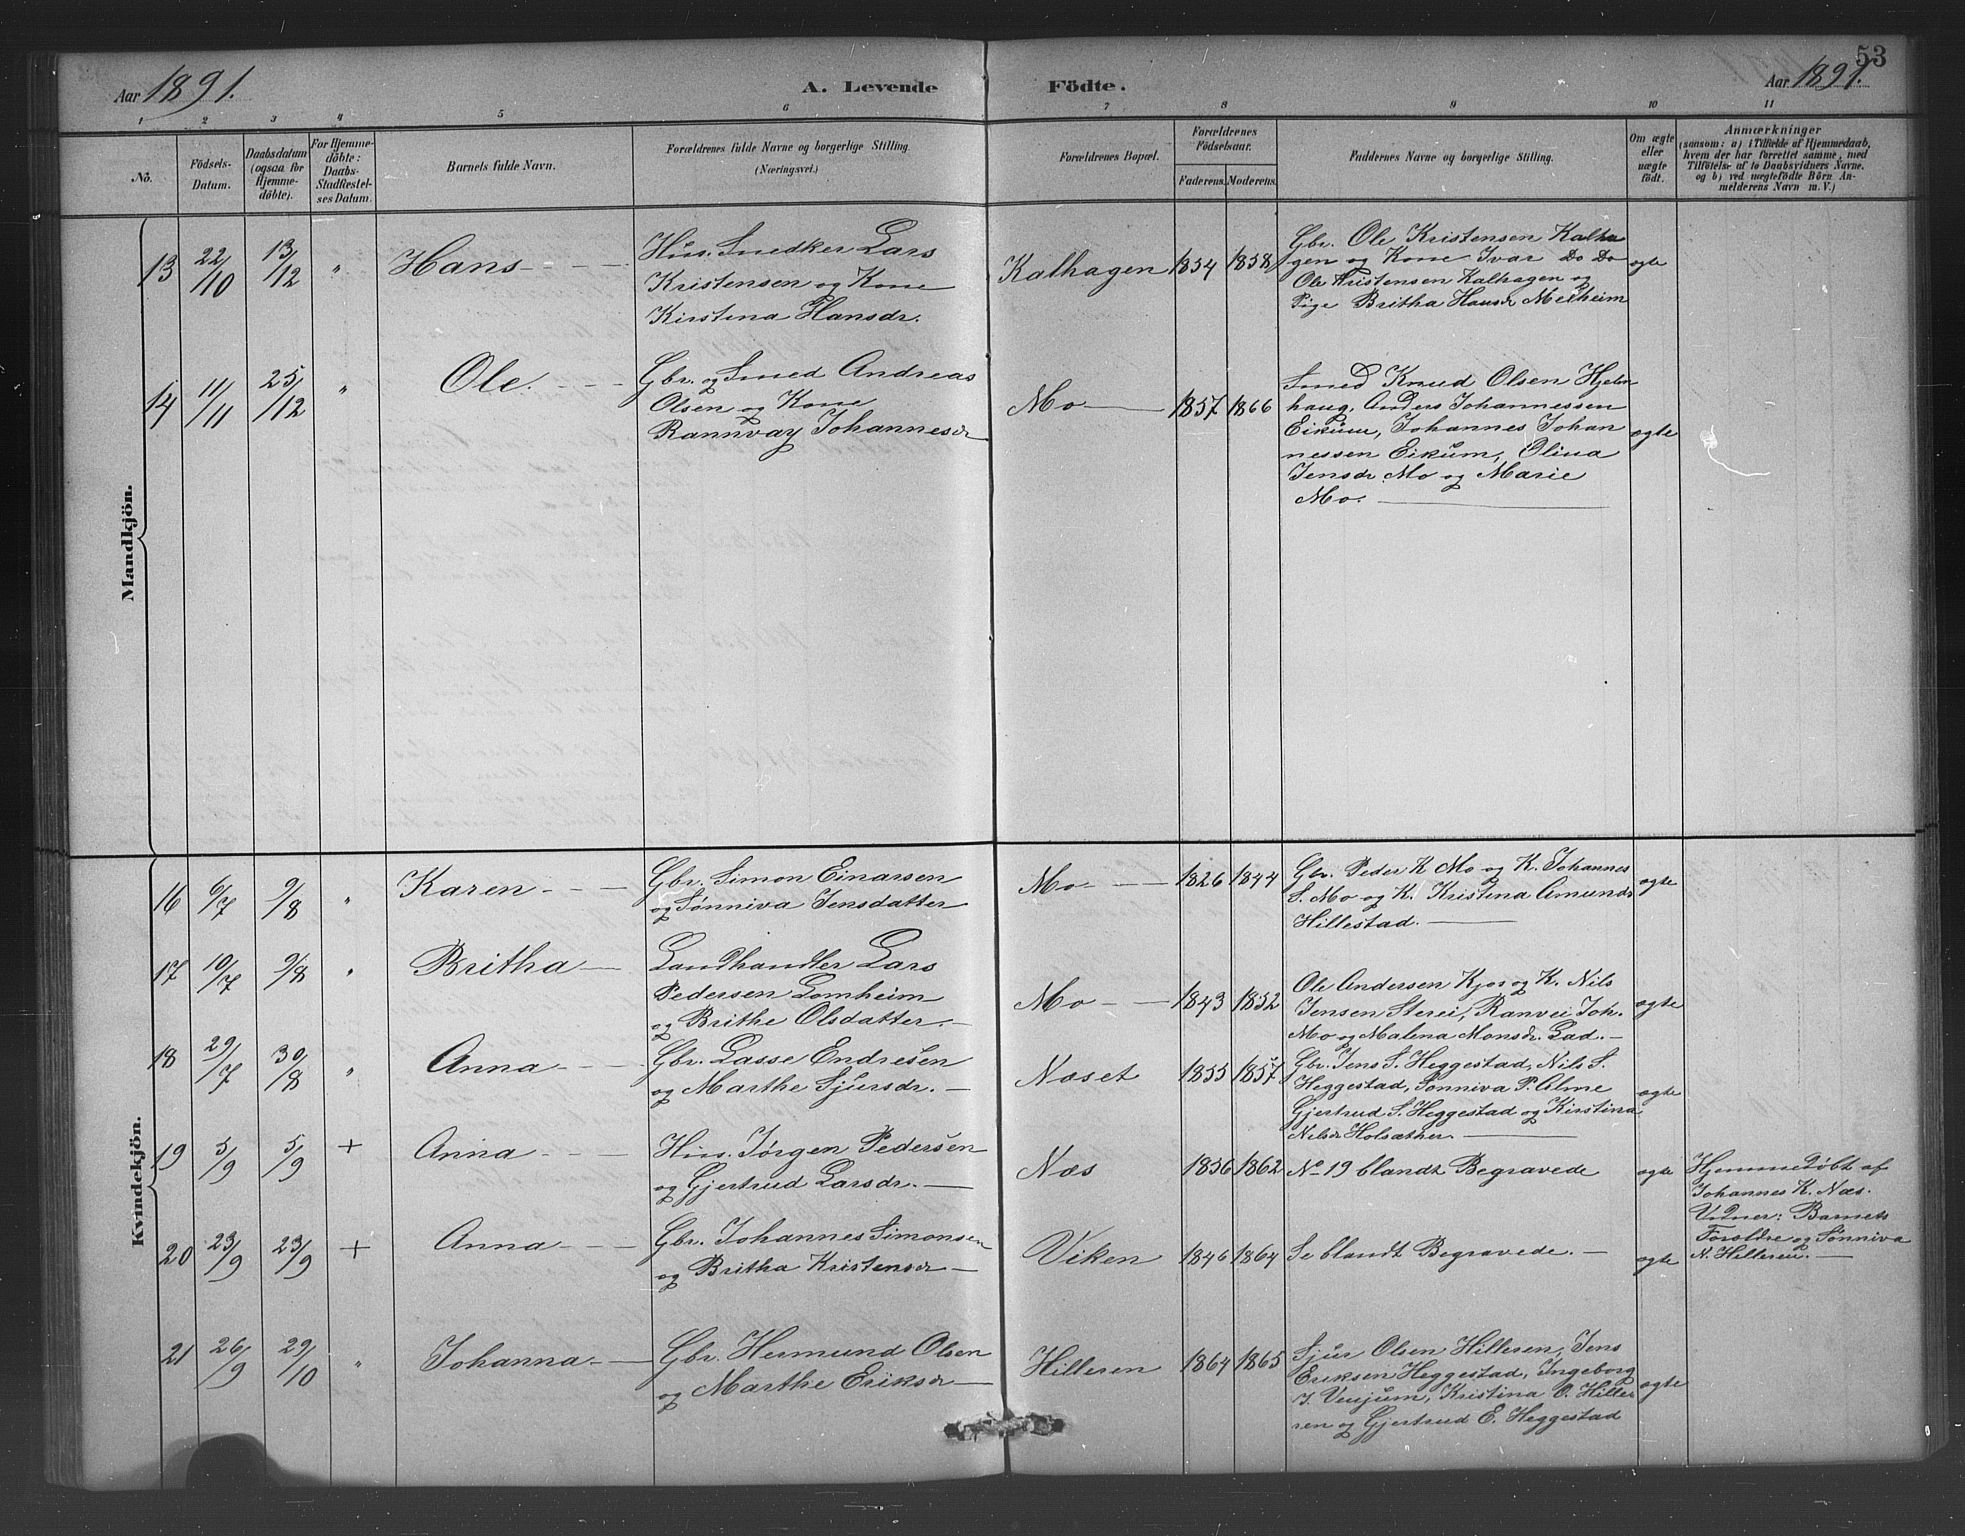 53
Aar 1891. A. Levende Födte. Aar 1891.
1 2 3 4 5 6 7 8 9 10 11
No.
Födsels-Datum.
Daabsdatum (ogsaa for Hjemmedöbte).
For Hjemmedöbte: Daabs-Stadfæstelses Datum.
Barnets fulde Navn.
Forældrenes fulde Navne og borgerlige Stilling.
(Næringsvei.)
Forældrenes Bopæl.
Forældrenes Födselsaar.
Faderens. Moderens.
Faddernes Navne og borgerlige Stilling.
Om ægte eller uægte födt.
Anmærkninger
(saasom: a) i Tilfælde af Hjemmedaab, hvem der har forrettet samme, med Tilföielse af to Daabsvidners Navne, og b) ved uægtefödte Börn Anmelderens Navn m. V.)
Mandkjön.
13 22/10 13/12 " Hans
Hus. Snedker Lars
Kristensen og Kone
Kirstina Hansdr.
Kalhagen 1854 1858
Gbr. Ole Kristensen Kalha
gen og Kone Ivar Do Do
Ole Kristensen Kalhagen og
Pige Britha Hansdr Melheim
ægte
14 11/11 25/12 " Ole.
Gbr. og Smed Andreas
Olsen og Kone
Rannvay Johannesdr
Mo 1857 1866
Smed Knud Olsen
haug, Anders Johannessen
Eikum, Johannes Johan
nessen Eikum, Olina
Jensdr Mo og Marie
Mo.
ægte
Kvindekjön.
16 6/7 9/8 " Karen
Gbr. Simon Einarsen
og Sønniva Jensdatter
Mo 1826 1844
Gbr. Peder K Mo og K. Johannes
S. Mo og K. Kristina Amundr
Hillestad.
ægte
17 10/7 9/8 " Britha
Landhandler Lars
Pedersen Lomheim
og Brithe Olsdatter.
Mo 1843 1852
Ole Andersen Kjos og K. Nils
Jensen Sterei, Ranvei Joh.
Mo og Malena Monsdr. Gad.
ægte
18 29/7 30/8 " Anna
Gbr. Lasse Endresen
og Marthe Sjursdr.
Næset 1855 1857
Gbr. Jens S. Heggestad, Nils S.
Heggestad, Sønniva P. Alme
Gjertrud S. Heggestad og Kirstina
Nilsdr Holsæther.
ægte
19 5/9 5/9 + Anna
Hus. Jørgen Pedersen
og Gjertrud Larsdr.
Næs 1856 1862
No 19 blandt Begravede
ægte
Hjemmedøbt af
Johannes K. Næs.
Vidner: Barnets
Foreldre og Sønniva
N. Hilleren.
20 23/9 23/9 + Anna
Gbr. Johannes Simonsen
og Britha Kristensdr
Viken 1846 1864
Se blandt Begravede.
ægte
21 26/9 29/10 " Johanna
Gbr. Hermund Olsen
og Marthe Eriksdr
Hilleren 1864 1865
Sjur Olsen Hilleren, Jens
Eriksen Heggestad, Ingeborg
J. Venjum, Kristina O. Hille
ren og Gjertrud E. Heggestad
ægte